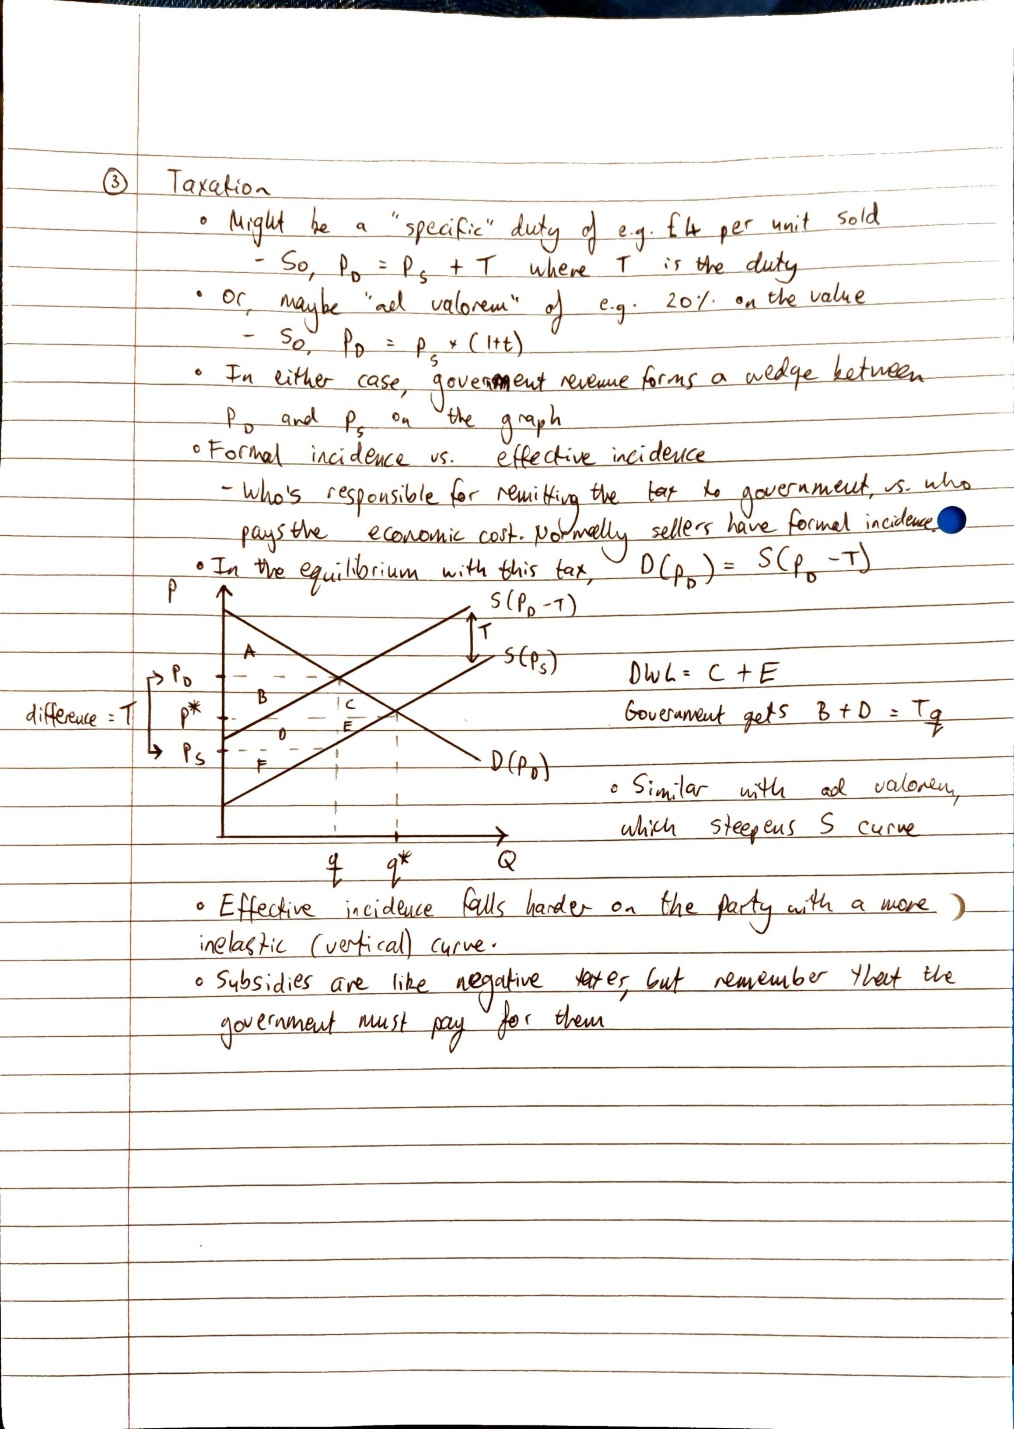 ③ Taxation
• Might be a "specific" duty of e.g. £4 per unit sold
- So, P_D = P_S + T where T is the duty
• Or, maybe "ad valorem" of e.g. 20% on the value
- So, P_D = P_S × (1+t)
• In either case, government revenue forms a wedge between
P_D and P_S on the graph
• Formal incidence vs. effective incidence
- Who's responsible for remitting the tax to government, vs. who
pays the economic cost. Normally sellers have formal incidence
• In the equilibrium with this tax, D(P_D) = S(P_D - T)
P
S(P_D - T)
T
S(P_S)
A
P_D
B
C
difference = T
P*
D
E
P_S
F
D(P_D)
q
q*
Q
DWL = C + E
Government gets B + D = Tq
• Similar with ad valorem,
which steepens S curve
• Effective incidence falls harder on the party with a more
inelastic (vertical) curve.
• Subsidies are like negative taxes, but remember that the
government must pay for them